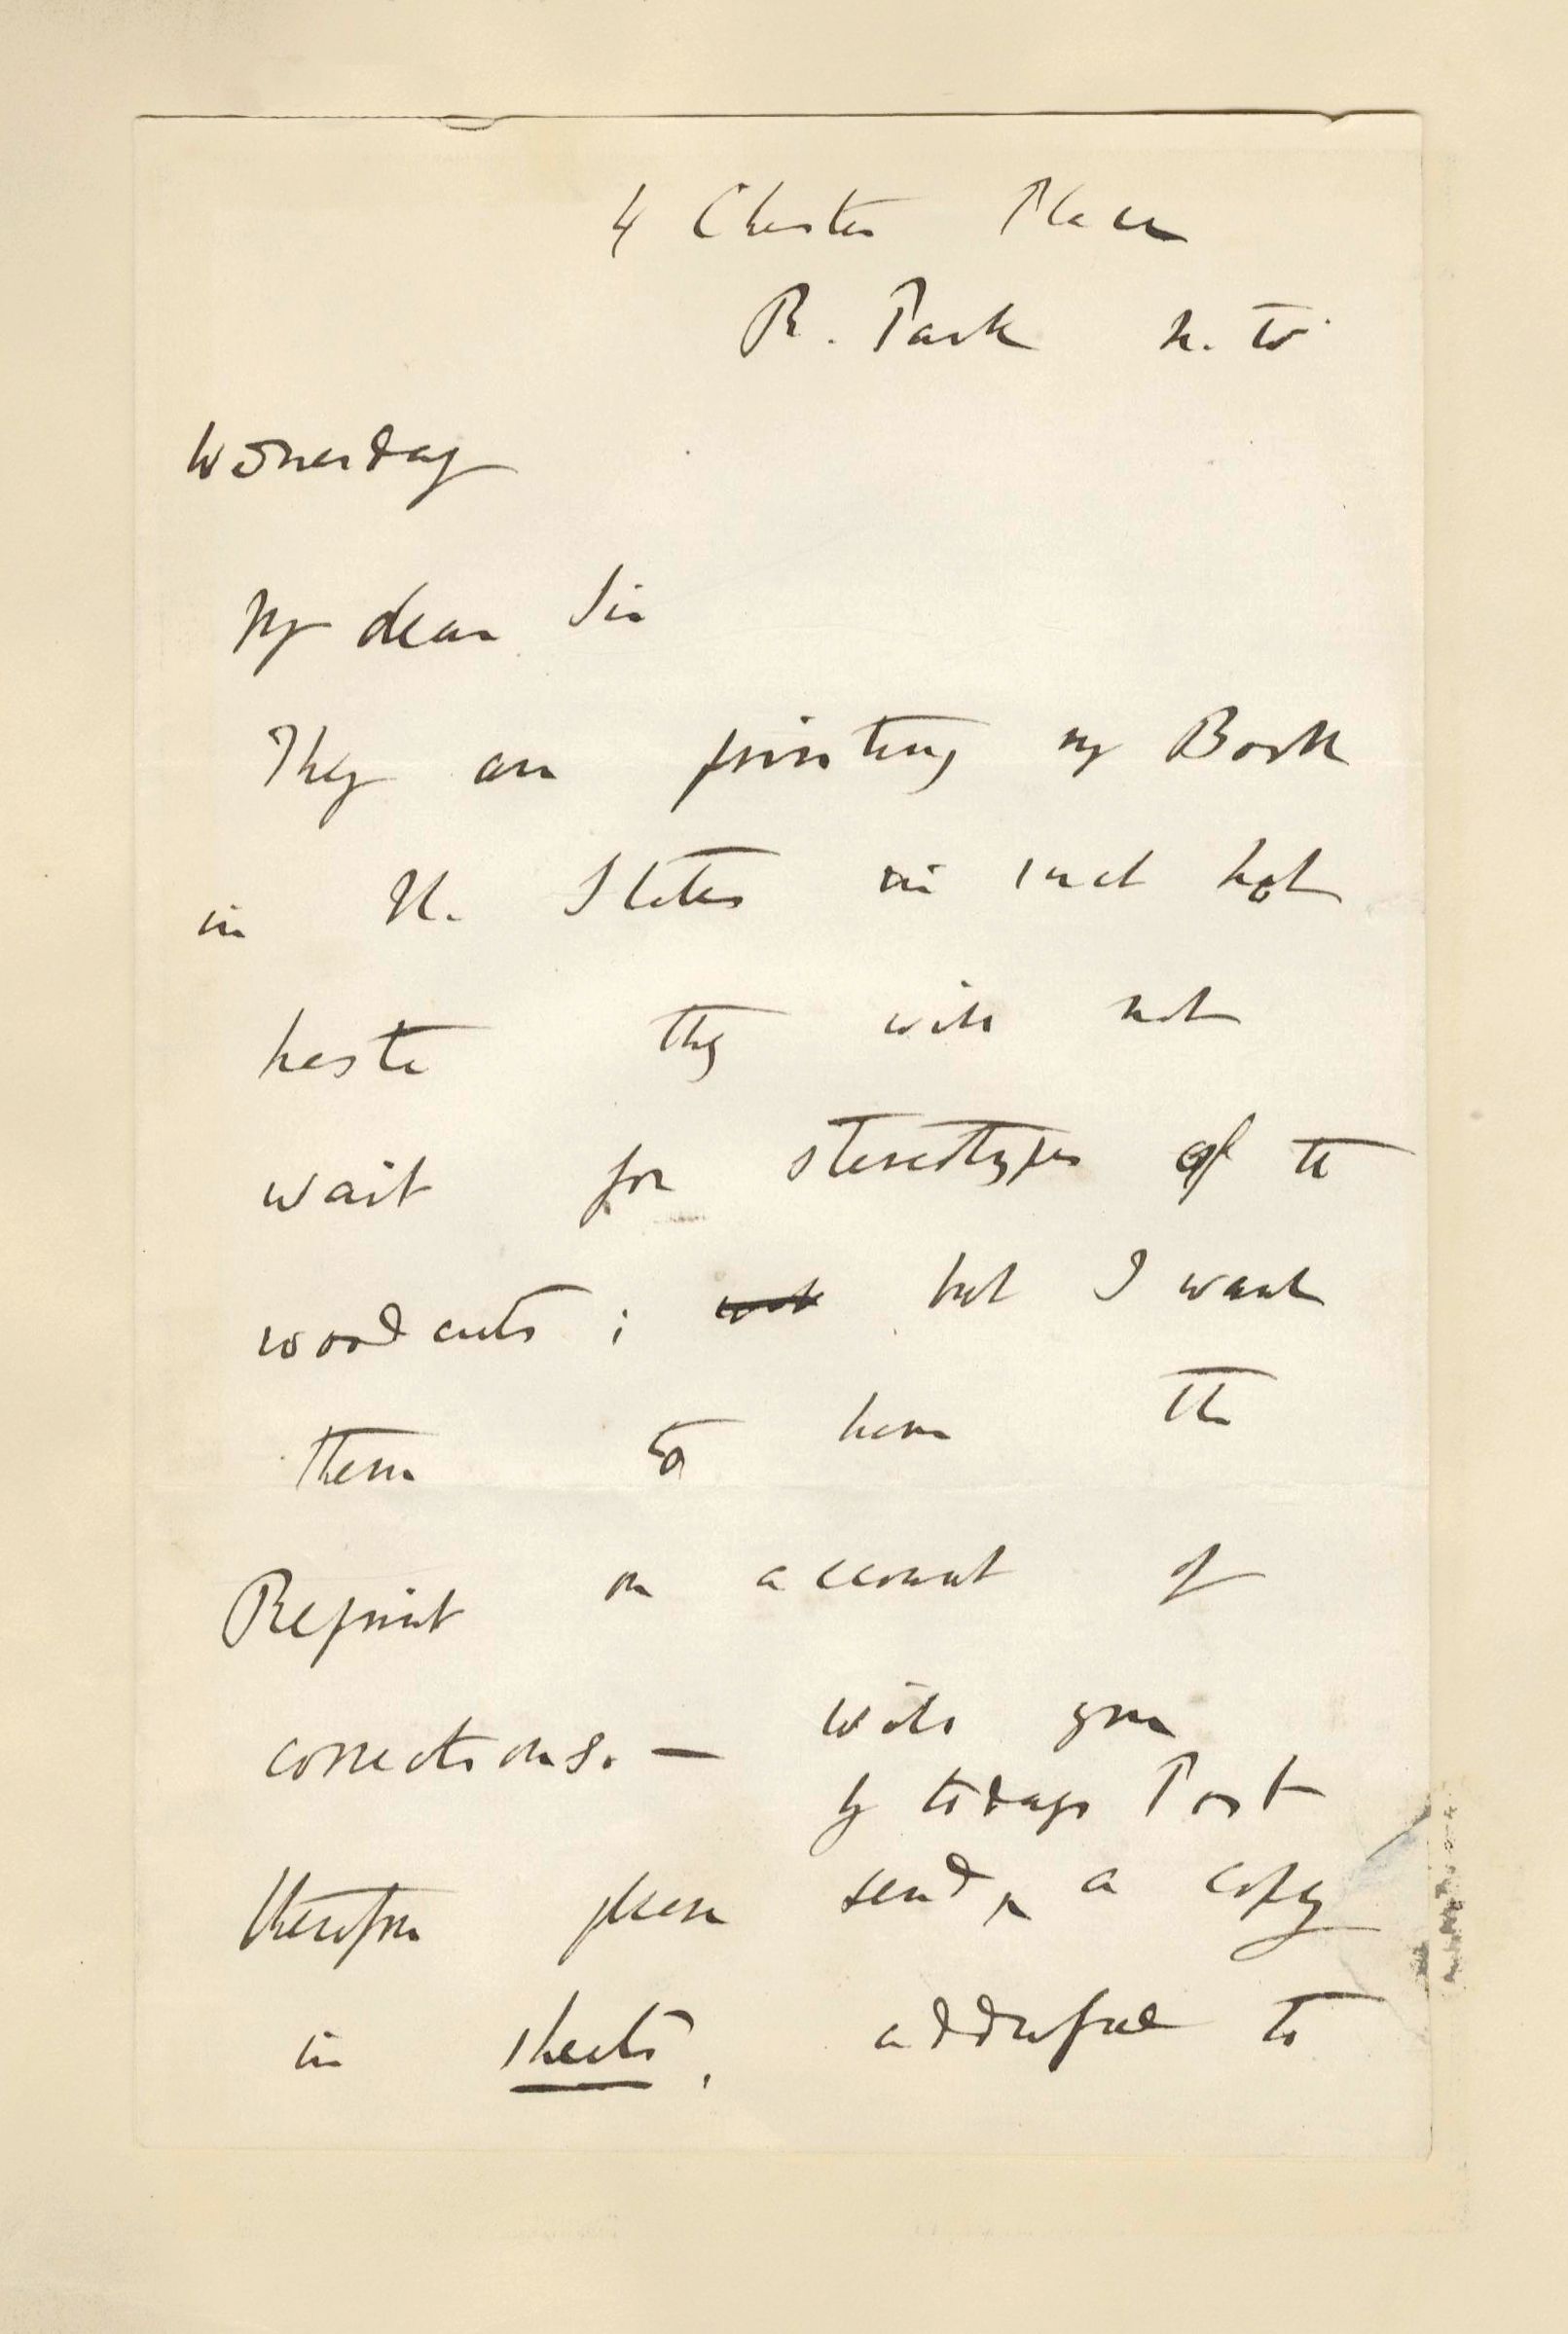 4 Chester Place
R. Park N. W.
Wednesday
My dear Sir
They are printing my Book
in U. States in such hot
haste they will not
wait for stereotypes of the
woodcuts; but I want
them to have the
Reprint on account of
corrections. — Will you
by todays Post
therefore please send ‸ a copy
in sheets, addressed to